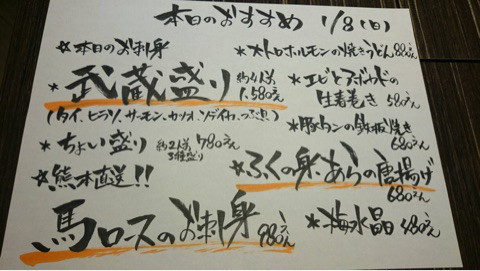 本日のおすすめ 1/8(日)
*本日のお刺身
*武蔵盛り 約4人前 1,580えん
(タイ、ヒラソ、サーモン、カツオ、ソデイカ、つぶ貝)
*ちょい盛り 約2人前 3種盛り 780えん
*熊本直送!!
馬ロースのお刺身 980えん
*大トロホルモンの焼きうどん 880えん
*エビとアボカドの
生春巻き 580えん
*豚タンの鉄板焼き
680えん
*ふくの身あらの唐揚げ
680えん
*梅水晶 480えん